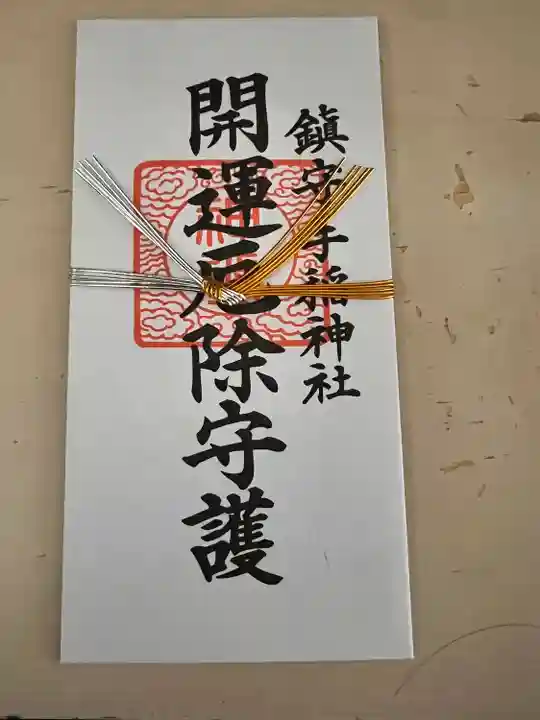 鎮守手稲神社
開運厄除守護